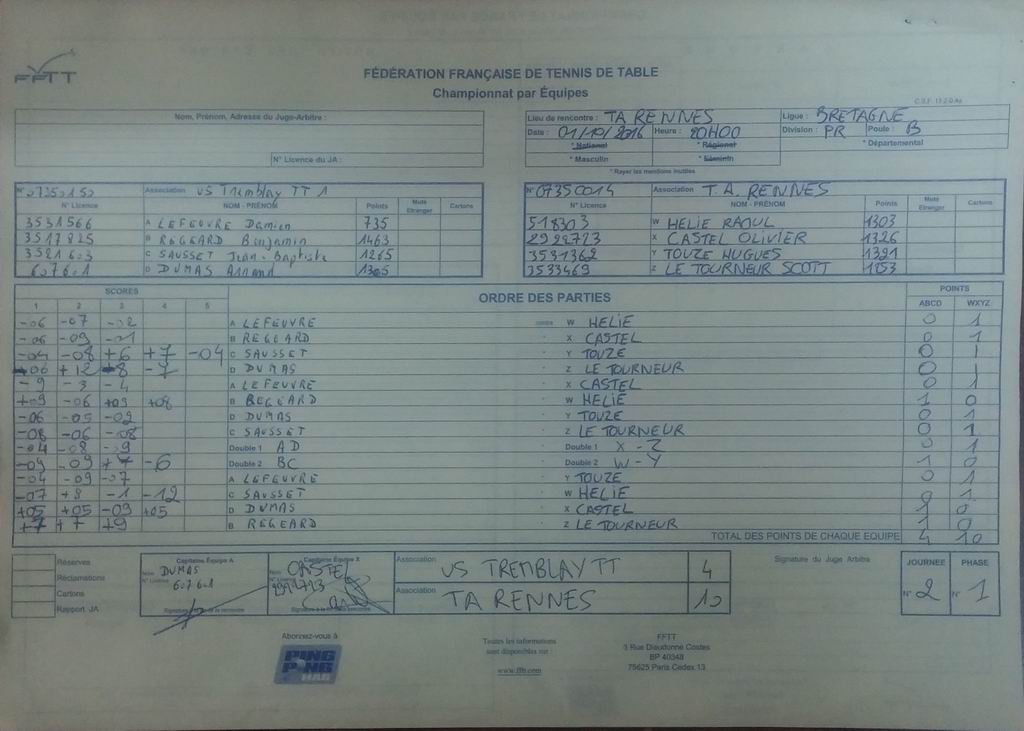 FFTT
FÉDÉRATION FRANÇAISE DE TENNIS DE TABLE
Championnat par Équipes
Nom, Prénom, Adresse du Juge-Arbitre :
N° Licence du JA :
Lieu de rencontre : TA RENNES Ligue : BRETAGNE
Date : 01/10/2016 Heure : 20H00 Division : PR Poule : B
* National * Régional * Départemental
* Masculin * Féminin
* Rayer les mentions inutiles
N° 07350150 Association US Tremblay TT 1
N° Licence NOM - PRÉNOM Points Muté Etranger Cartons
3531566 A LEFEUVRE Damien 735
3517825 B REGEARD Benjamin 1463
3521603 C SAUSSET Jean-Baptiste 1265
607601 D DUMAS Arnaud 1305
N° 07350014 Association T.A. RENNES
N° Licence NOM - PRÉNOM Points Muté Etranger Cartons
518303 W HELIE RAOUL 1303
2922723 X CASTEL OLIVIER 1326
3531362 Y TOUZE HUGUES 1391
3533469 Z LE TOURNEUR SCOTT 1253
SCORES ORDRE DES PARTIES POINTS
1 2 3 4 5 ABCD WXYZ
-06 -07 -02 A LEFEUVRE contre W HELIE 0 1
-06 -09 -01 B REGEARD X CASTEL 0 1
-04 -08 +6 +7 -04 C SAUSSET Y TOUZE 0 1
-06 +12 -8 -7 D DUMAS Z LE TOURNEUR 0 1
-9 -3 -4 A LEFEUVRE X CASTEL 0 1
+09 -06 +09 +08 B REGEARD W HELIE 1 0
-06 -05 -09 D DUMAS Y TOUZE 0 1
-08 -06 -08 C SAUSSET Z LE TOURNEUR 0 1
-04 -08 -9 Double 1 AD Double 1 X - Z 0 1
-09 -09 +7 -6 Double 2 BC Double 2 W - Y 1 0
-04 -09 -07 A LEFEUVRE Y TOUZE 0 1
-07 +8 -1 -12 C SAUSSET W HELIE 0 1
+05 +05 -09 +05 D DUMAS X CASTEL 1 0
+7 +7 +9 B REGEARD Z LE TOURNEUR 1 0
TOTAL DES POINTS DE CHAQUE EQUIPE 4 10
Réserves
Réclamations
Cartons
Rapport JA
Capitaine Équipe A
Nom DUMAS
N° Licence 607601
Capitaine Équipe X
Nom CASTEL
2922723
Association US TREMBLAY TT 4
Association TA RENNES 10
Signature du Juge Arbitre
JOURNEE PHASE
N° 2 N° 1
Abonnez-vous à
PING PONG MAG
Toutes les informations
sont disponibles sur :
www.fftt.com
FFTT
3 Rue Dieudonné Costes
BP 40348
75625 Paris Cedex 13